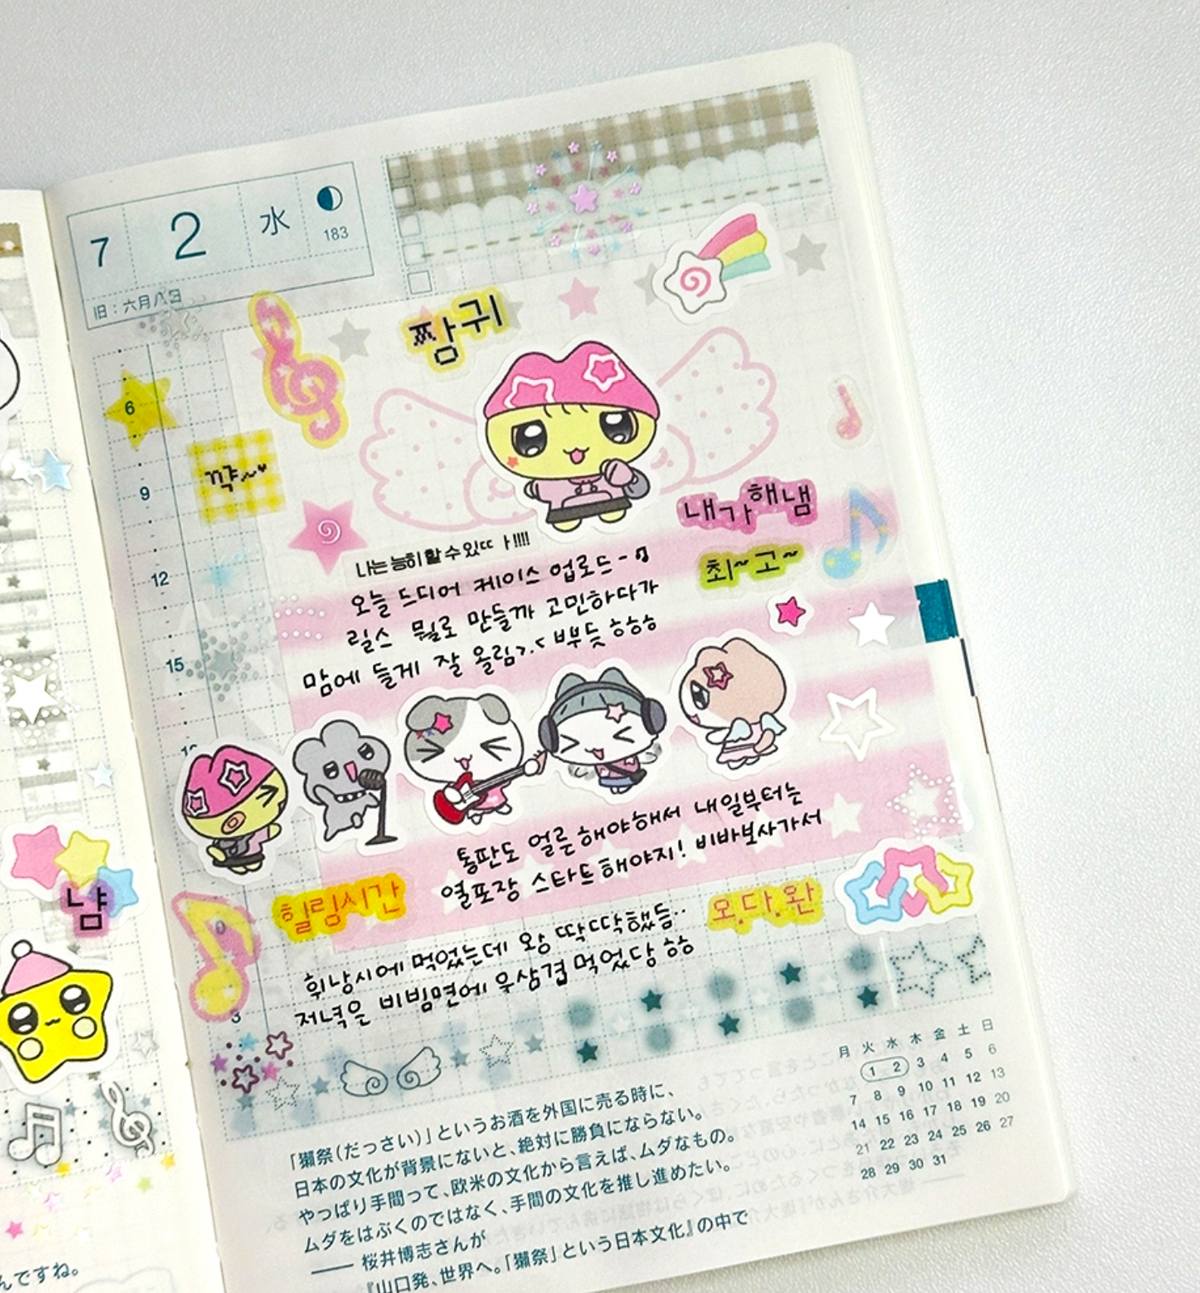 7 2 水
183
旧：六月八日
짱귀
6
꺅~♥
9
내가해냄
나는 능히 할 수 있ㄸㅏ!!!!
최~고~
12
오늘 드디어 케이스 업로드~♫
릴스 뭘로 만들까 고민하다가
15
맘에 들게 잘 올림>.< 뿌듯 ㅎㅎㅎ
통판도 얼른 해야해서 내일부터는
열포장 스타트해야지! 비바보사가서
냠
힐림시간
오.다.완
휘낭시에 먹었는데 왕 딱딱했듬..
저녁은 비빔면에 우삼겹 먹었당 ㅎㅎ
3
月 火 水 木 金 土 日
1 2 3 4 5 6
7 8 9 10 11 12 13
14 15 16 17 18 19 20
21 22 23 24 25 26 27
28 29 30 31
「獺祭（だっさい）」というお酒を外国に売る時に、
日本の文化が背景にないと、絶対に勝負にならない。
やっぱり手間って、欧米の文化から言えば、ムダなもの。
ムダをはぶくのではなく、手間の文化を推し進めたい。
―― 桜井博志さんが
『山口発、世界へ。「獺祭」という日本文化』の中で
んですね。